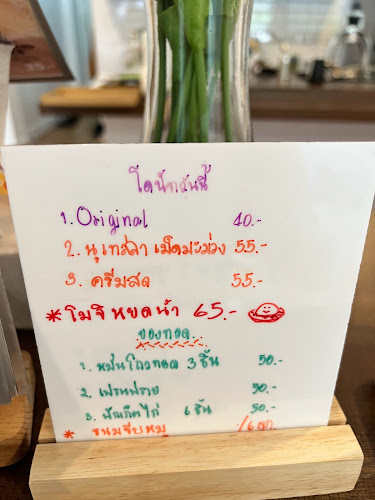 โดนัทวันนี้
1. Original 40.-
2. นูเทลลา เม็ดมะม่วง 55.-
3. ครีมสด 55.-
* โมจิหยดน้ำ 65.-
ของทอด
1. หมั่นโถวทอด 3 ชิ้น 50.-
2. เฟรนฟราย 50.-
3. นักเก็ตไก่ 6 ชิ้น 50.-
* ขนมจีบหมู